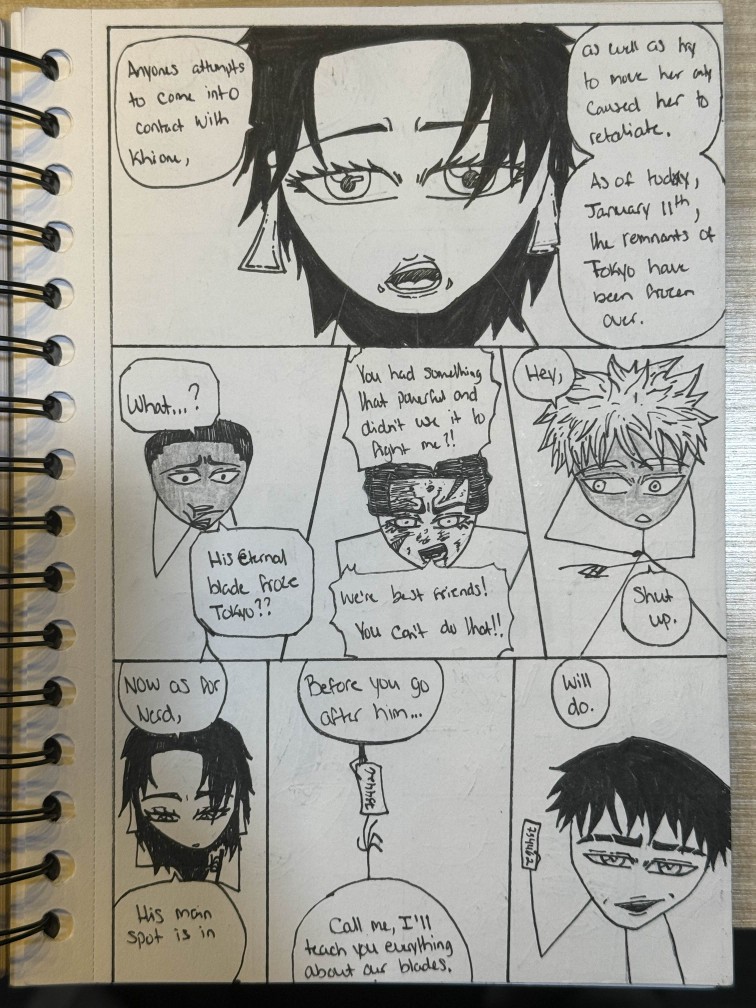 Anyones attempts
to come into
contact with
Khione,
as well as try
to move her only
caused her to
retaliate.
As of today,
January 11th,
the remnants of
Tokyo have
been frozen
over.
What...?
His eternal
blade froze
Tokyo??
You had something
that powerful and
didn't use it to
fight me?!!
We're best friends!
You can't do that!!
Hey,
Shut
up.
Now as for
Nerd,
His main
spot is in
Before you go
after him...
Call me, I'll
teach you everything
about our blades.
Will
do.